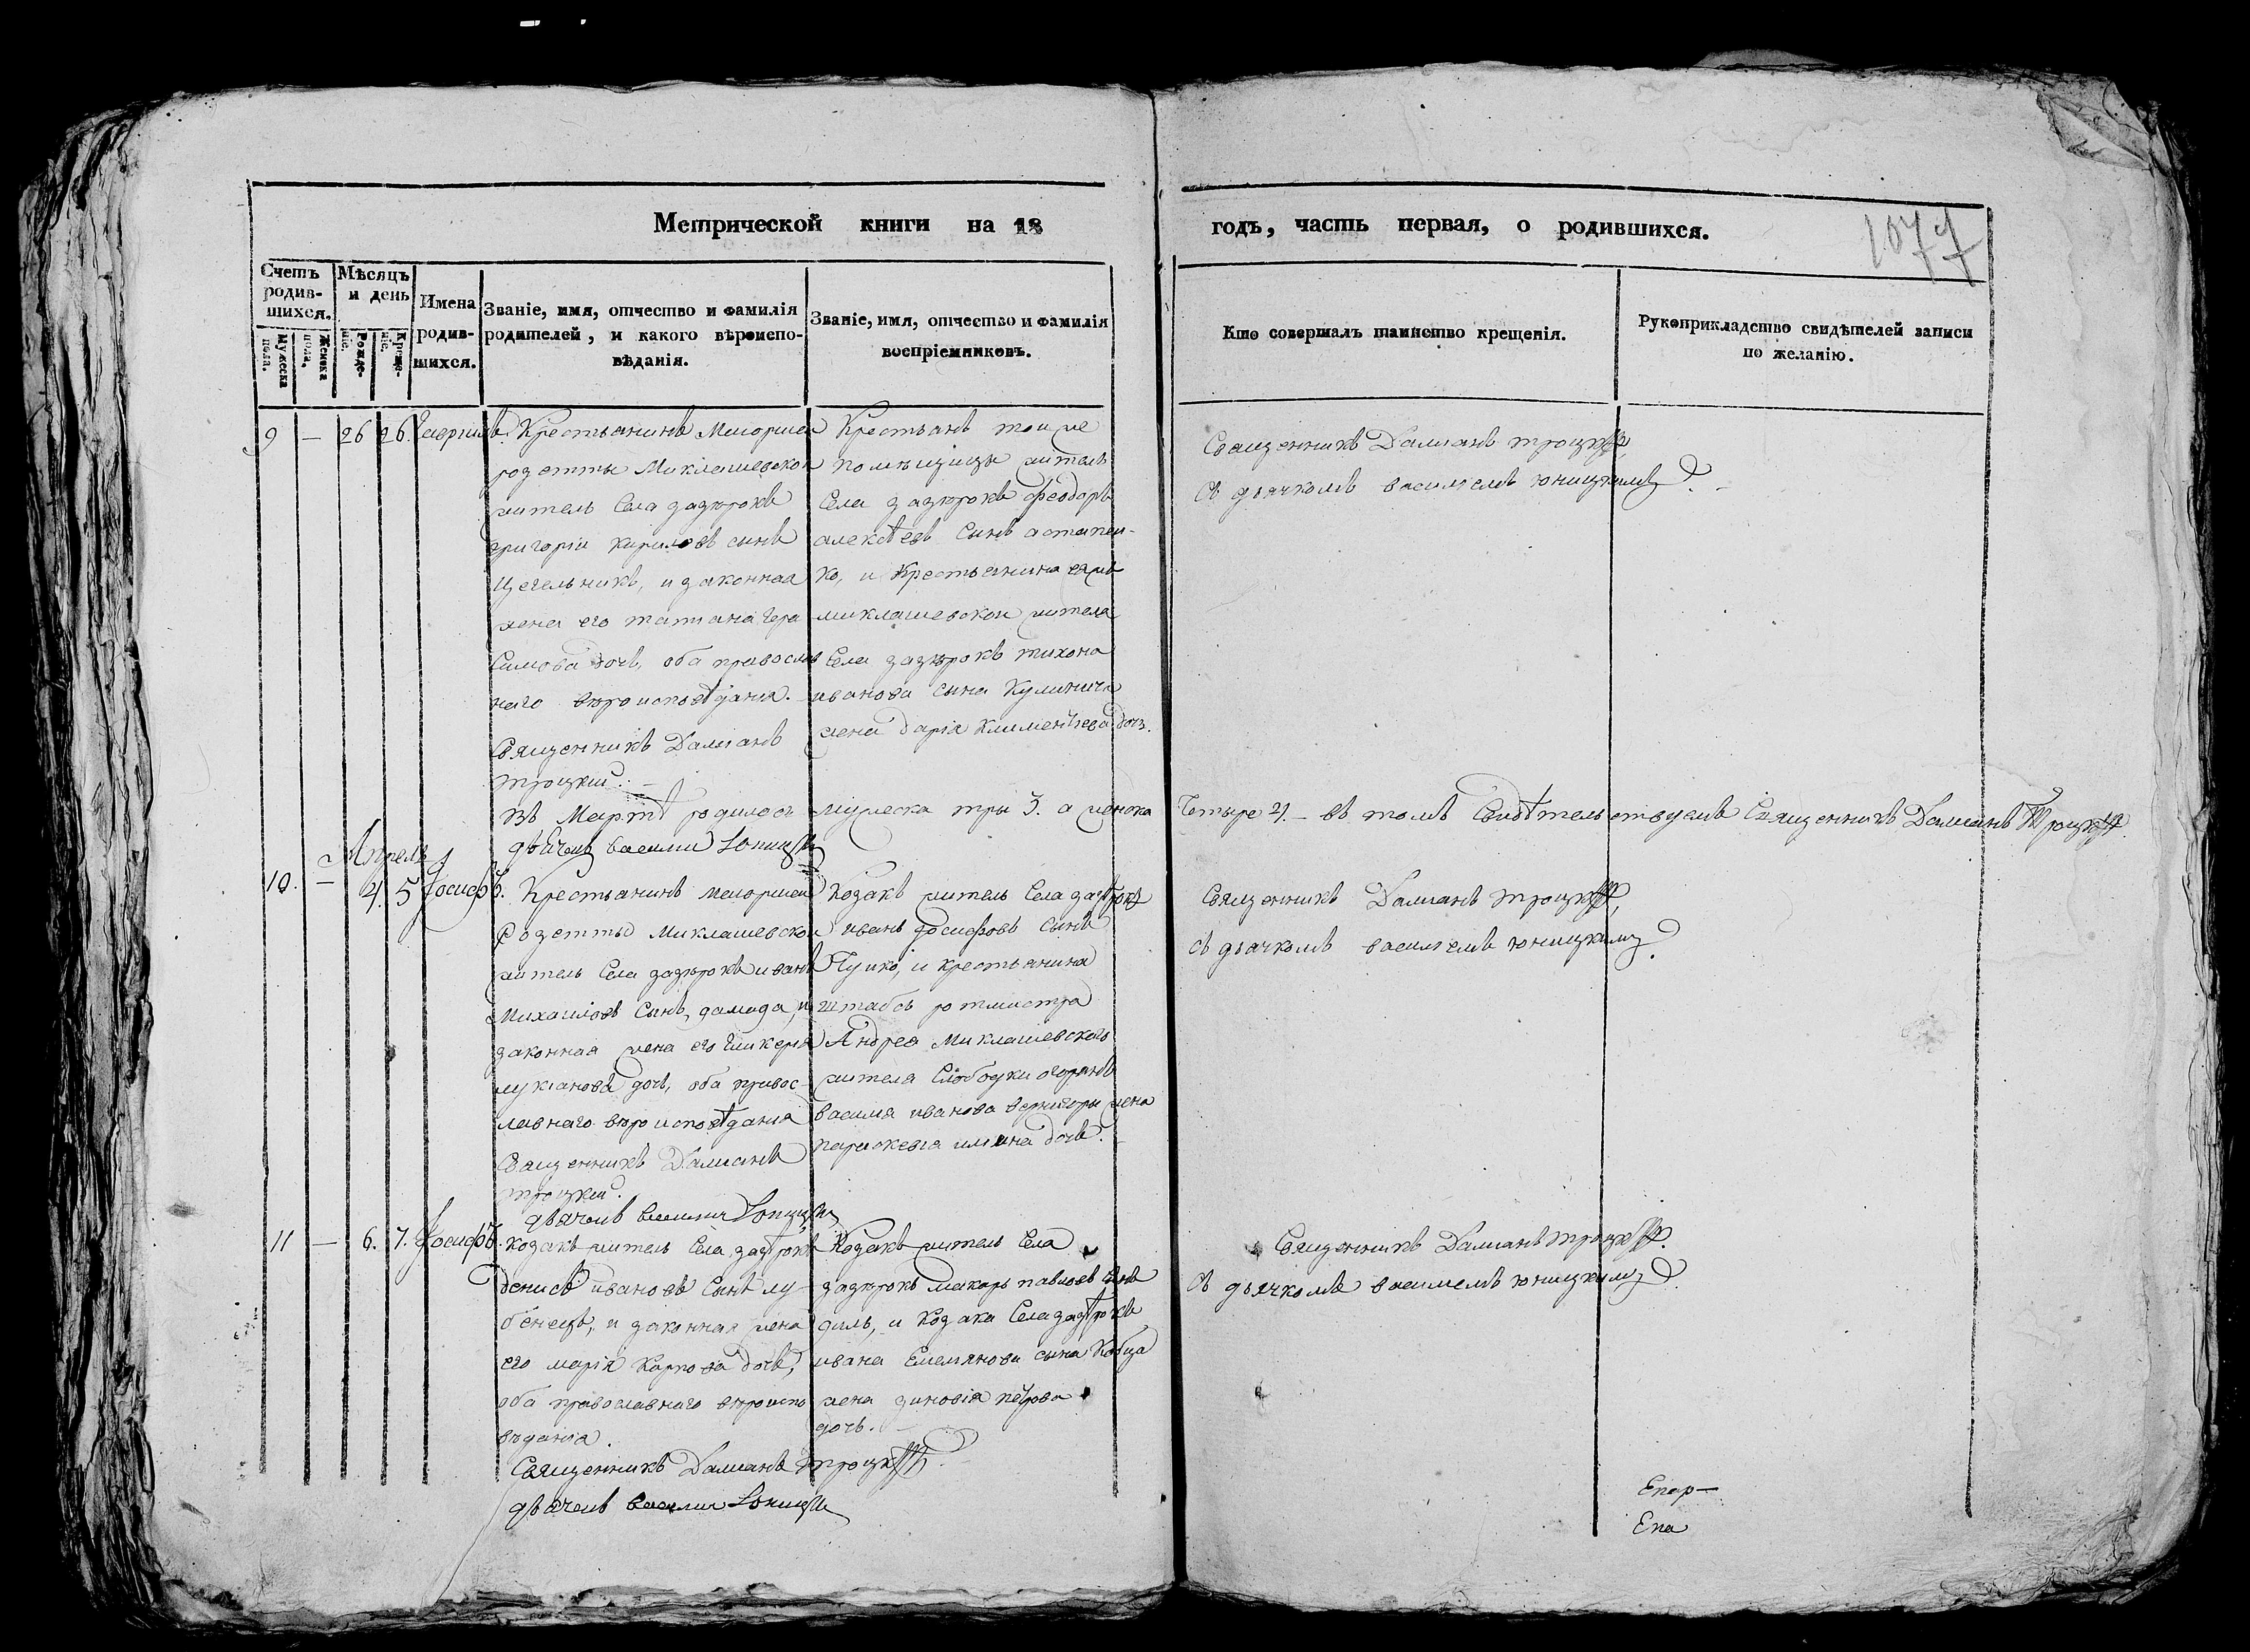 Метрической книги на 18
годъ, часть первая, о родившихся.
1077
Счетъ родив-шихся.
Мужеска пола.
Женска пола.
Мѣсяцъ и день
Рожде-ніе.
Креще-ніе.
Имена родив-шихся.
Званіе, имя, отчество и фамилія
родителей, и какого вѣроиспо-
вѣданія.
Званіе, имя, отчество и фамилія
воспріемниковъ.
Кто совершалъ таинство крещенія.
Рукоприкладство свидѣтелей записи
по желанію.
9 — 26 26
Крестьянинъ
Миклашевской
житель Села задѣрокъ
григоріи Кириловъ сынъ
Цегельникъ, и законная
жена его татиана Гера
симова дочь, оба православ
наго вѣроисповѣданія.
Священникъ Дамианъ
троцкии. —
Крестьянъ тои же
помѣщицы житель
Села задѣрокъ феодоръ
алексѣевъ Сынъ астапен-
ко, и Крестьянина
миклашевскои жителя
Села задѣрокъ тихона
иванова сына Кулинича
жена дарія Климентіева дочь.
Священникъ Дамианъ троцкій
съ дьячкомъ василіемъ юницкимъ. —
Въ Мартѣ родилось мужеска три 3. а женска
Четыре 4. — въ томъ Свидѣтельствуемъ Священникъ Дамианъ Троцкій
дьячекъ василии Юницкій
Апрель
10. — 4. 5 Іосифъ.
Крестьянинъ
Розетты Миклашевскои
житель Села задѣрокъ иванъ
Михаиловъ Сынъ, и
законная жена его Гликерія
лукіанова дочь, оба правос-
лавнаго вѣроисповѣданія
Священникъ Дамианъ
троцкии.
дьячекъ василии Юницкій
Козакъ житель Села задѣрокъ
иванъ Іосифовъ Сынъ
и крестьянина
штабсъ ротмистра
Андрея Миклашевскаго
жителя Слободки
василія иванова вернигоры жена
параскевія илина дочь.
Священникъ Дамианъ троцкій,
съ дьячкомъ василіемъ юницкимъ.
11 — 6. 7. Іосифъ.
Козакъ житель Села задѣрокъ
денисъ ивановъ Сынъ лу
бенецъ, и законная жена
его марія Карпова дочь,
оба православнаго вѣроиспо
вѣданія.
Священникъ Дамианъ троцкій.
дьячекъ василии Юницкій
Козакъ житель Села
задѣрокъ макаръ павловъ сынъ
и Козака Села задѣрокъ
ивана Емельянова сына Кобца
жена зиновія петрова
дочь. —
Священникъ Дамианъ троцкій.
съ дьячкомъ василіемъ юницкимъ.
Епар—
Епа